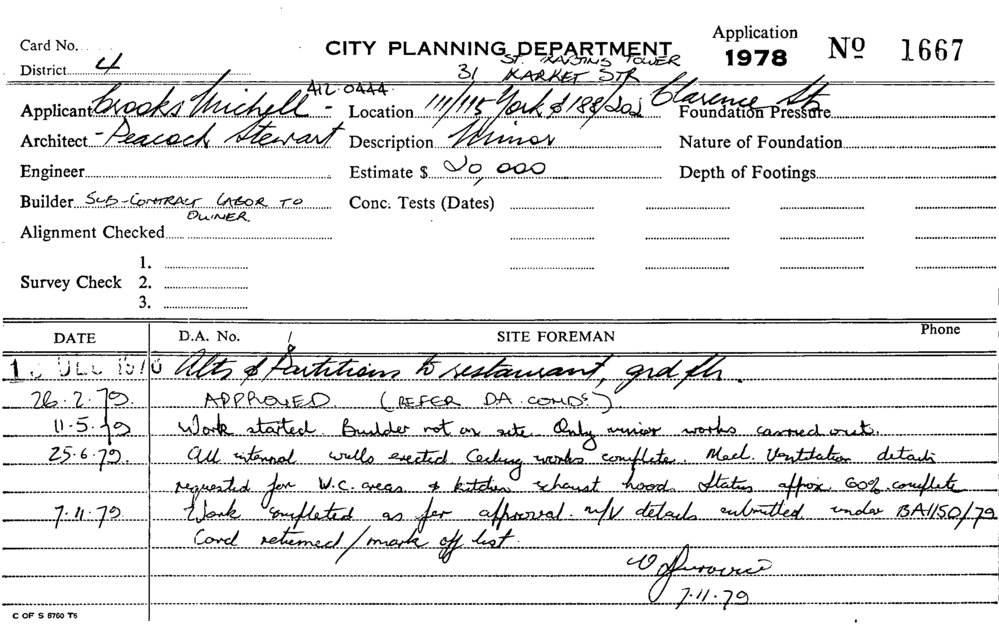 Application
Card No. CITY PLANNING DEPARTMENT 1978 No 1667
ST. MARTINS TOWER
District 4 31 MARKET STR
A12-0444
Applicant Crooks Michell - Location 111/115 York & 188/202 Clarence St
Foundation Pressure
Architect - Peacock Stewart Description Minor Nature of Foundation
Engineer Estimate $ 20,000 Depth of Footings
Builder SUB-CONTRACT LABOR TO Conc. Tests (Dates)
OWNER
Alignment Checked
1.
Survey Check 2.
3.
DATE D.A. No. SITE FOREMAN Phone
DEC 1978 Alts & Partitions to restaurant, grd flr.
26.2.79. APPROVED. (REFER D.A. CONDS.)
11-5.79 Work started. Builder not on site. Only minor works carried out.
25.6.79. All internal walls erected. Ceiling works complete. Mech. Ventilation details
requested for W.C. areas & kitchen exhaust hood. Status approx 60% complete
7.11.79. Work completed as per approval. M/V details submitted under BA1150/79
Card returned/mark off list.
7.11.79
C OF S 5760 T6